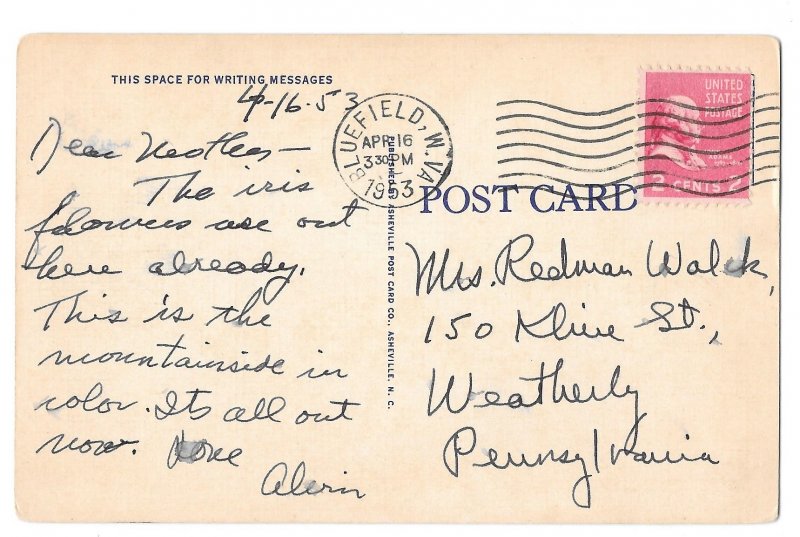 THIS SPACE FOR WRITING MESSAGES
4-16-53
Dear Mother—
The iris
flowers are out
here already.
This is the
mountainside in
color. Its all out
now. Love
Alvin
BLUEFIELD, W.VA.
APR 16
330 PM
1953
PUBLISHED BY ASHEVILLE POST CARD CO., ASHEVILLE, N. C.
UNITED
STATES
POSTAGE
ADAMS
2 CENTS 2
POST CARD
Mrs. Redman Walck,
150 Kline St.,
Weatherly
Pennsylvania